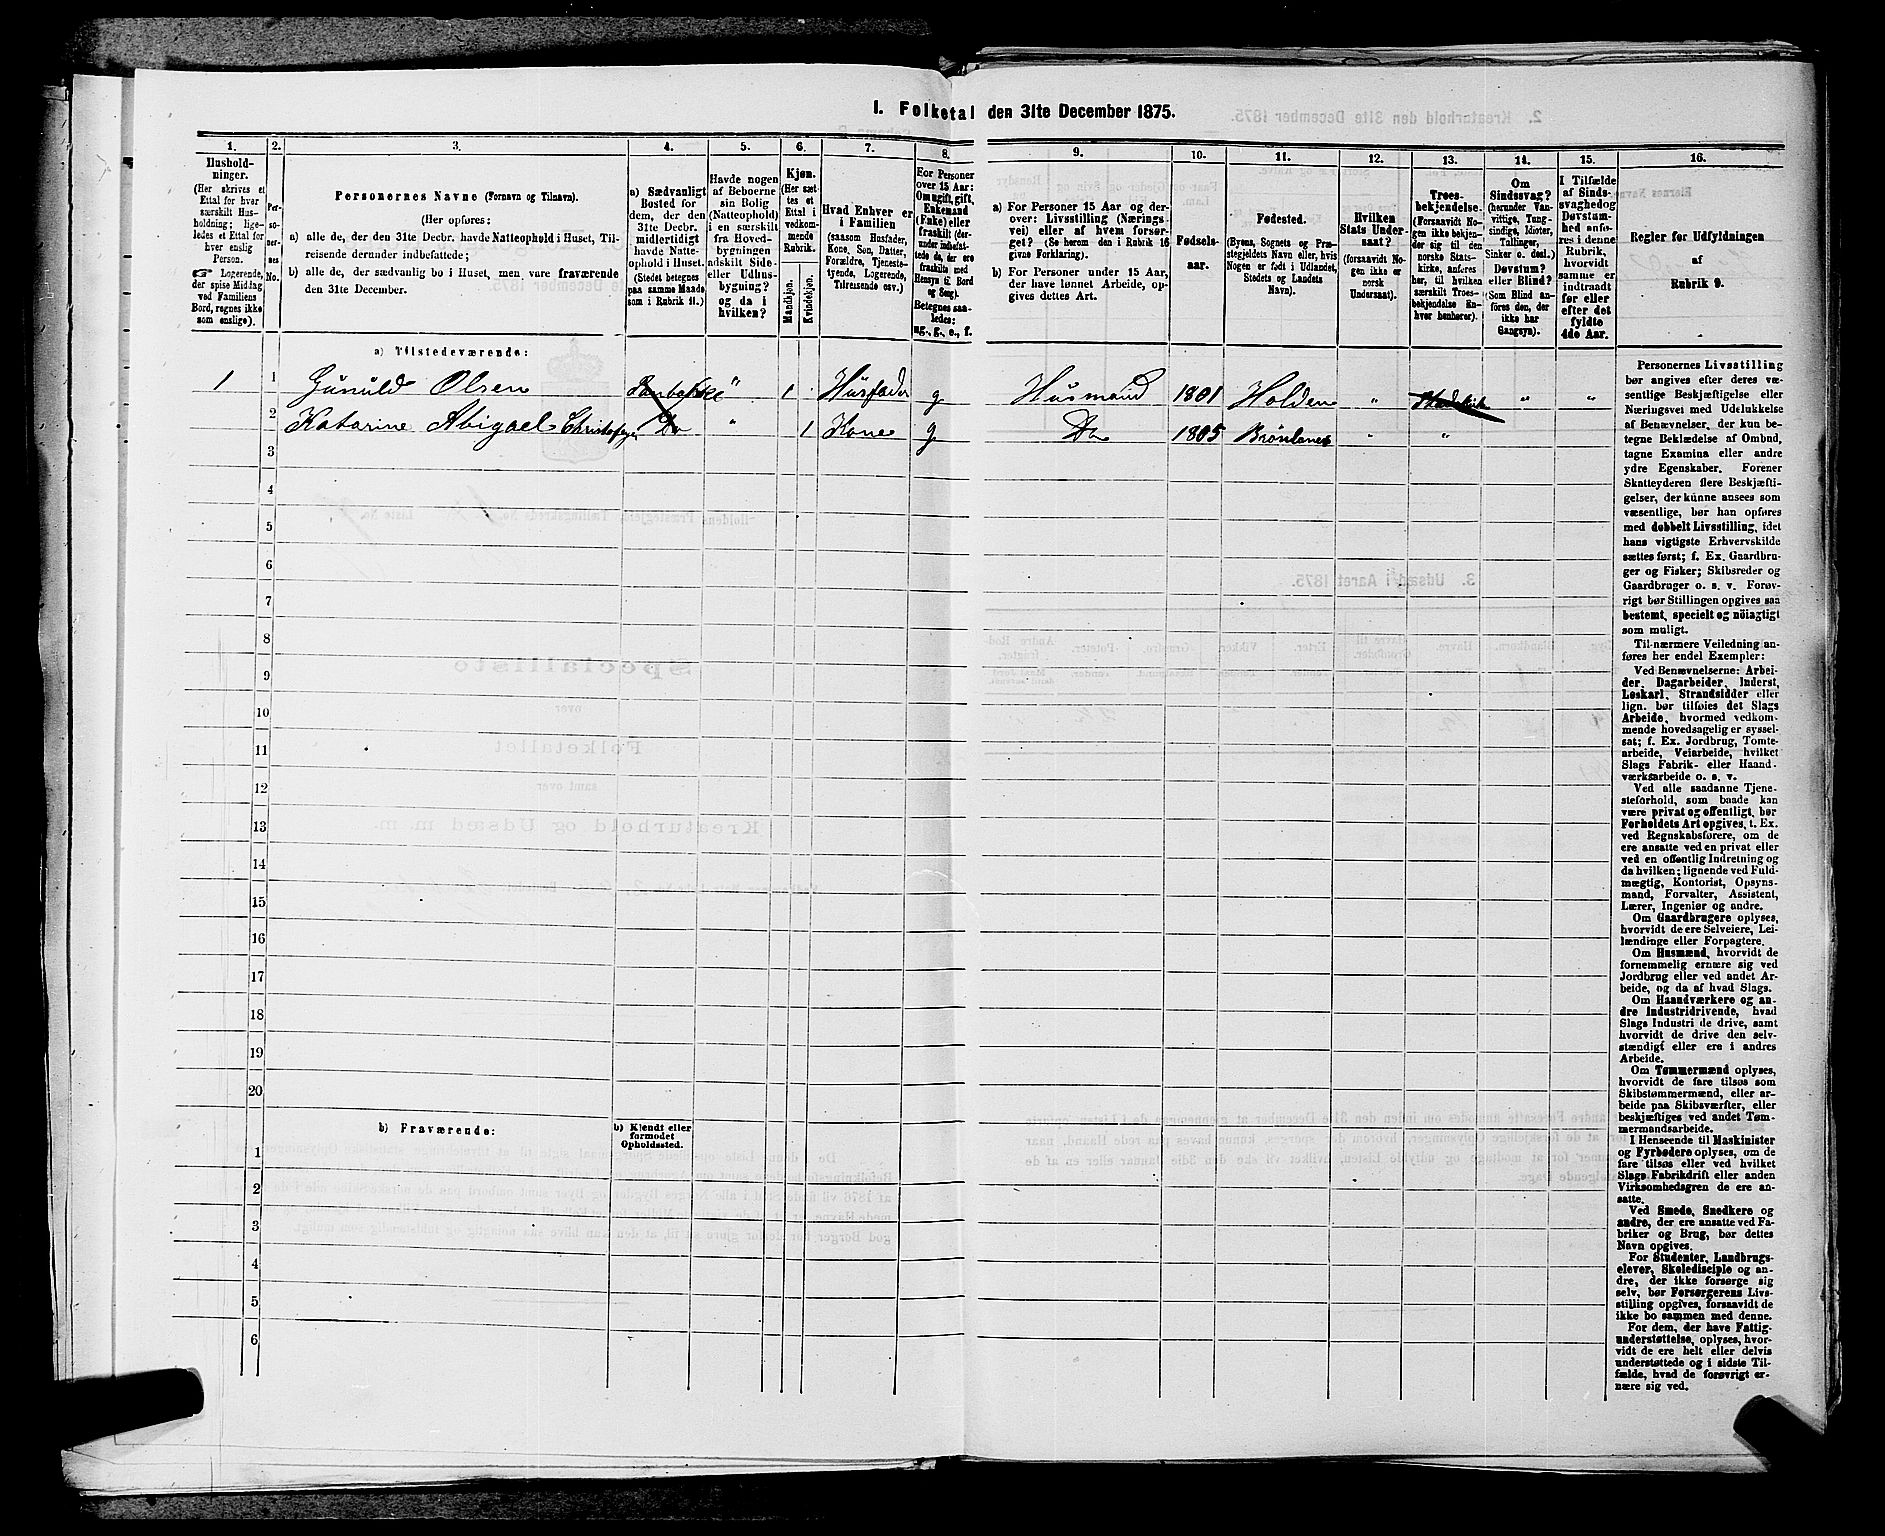 I. Folketal den 31te December 1875.
1. 2. 3. 4. 5. 6. 7. 8. 9. 10. 11. 12. 13. 14. 15. 16.
Hushold-
ninger.
(Her skrives et
Ettal for hver
særskilt Hus-
holdning; lige-
ledes et Ettal for
hver enslig
Person.
Logerende,
der spise Middag
ved Familiens
Bord, regnes ikke
som enslige).
Per-
so-
ner-
nes
No.
Personernes Navne (Fornavn og Tilnavn).
(Her opføres:
a) alle de, der den 31te Decbr. havde Natteophold i Huset, Til-
reisende derunder indbefattede;
b) alle de, der sædvanlig bo i Huset, men vare fraværende
den 31te December.
a) Sædvanligt
Bosted for
dem, der den
31te Decbr.
midlertidigt
havde Natte-
ophold i Huset.
(Stedet betegnes
paa samme Maade
som i Rubrik 11.)
Havde nogen
af Beboerne
sin Bolig
(Natteophold)
i en særskilt
fra Hoved-
bygningen
adskilt Side-
eller Udhus-
bygning?
og da i
hvilken?
Kjøn.
(Her sæt-
tes et
Ettal i
vedkom-
mende
Rubrik.
Mandkjøn.
Kvindekjøn.
Hvad Enhver er
i Familien
(saasom Husfader,
Kone, Søn, Datter,
Forældre, Tjeneste-
tyende, Logerende,
Tilreisende osv.)
For Personer
over 15 Aar:
Om ugift, gift,
Enkemand
(Enke) eller
fraskilt (der-
under indbefat-
tede de, der ere
fraskilte med
Hensyn til Bord
og Seng).
Betegnes saa-
ledes:
ug., g., e., f.
a) For Personer 15 Aar og der-
over: Livsstilling (Nærings-
vei) eller af hvem forsør-
get? (Se herom den i Rubrik 16
givne Forklaring).
b) For Personer under 15 Aar,
der have lønnet Arbeide, op-
gives dettes Art.
Fødsels-
aar.
Fødested.
(Byens, Sognets og Præ-
stegjeldets Navn eller, hvis
Nogen er født i Udlandet,
Stedets og Landets
Navn).
Hvilken
Stats Under-
saat?
(forsaavidt No-
gen ikke er
norsk
Undersaat).
Troes-
bekjendelse.
(Forsaavidt No-
gen ikke bekjen-
der sig til den
norske Stats-
kirke, anføres
her, til hvilken
særskilt Troes-
bekjendelse En-
hver henhører).
Om
Sindssvag?
(herunder Van-
vittige, Tung-
sindige, Idioter,
Tullinger,
Sinker o. desl.)
Døvstum?
eller Blind?
(Som Blind an-
føres den, der
ikke har
Gangsyn).
I Tilfælde
af Sinds-
svaghed og
Døvstum-
hed anfø-
res i denne
Rubrik,
hvorvidt
samme er
indtraadt
før eller
efter det
fyldte
4de Aar.
Regler for Udfyldningen
af
Rubrik 9.
a) Tilstedeværende:
1 1 Gunuld Olsen " 1 Husfader g Husmand 1801 Holden " " "
2 Katarine Abigael Christofersen Do " 1 Kone g Do 1805 Brönlanes " "
3
4
5
6
7
8
9
10
11
12
13
14
15
16
17
18
19
20
b) Fraværende:
b) Kjendt eller
formodet
Opholdssted.
1
2
3
4
5
6
Personernes Livsstilling
bør angives efter deres væ-
sentlige Beskjæftigelse eller
Næringsvei med Udelukkelse
af Benævnelser, der kun be-
tegne Beklædelse af Ombud,
tagne Examina eller andre
ydre Egenskaber. Forener
Skatteyderen flere Beskjæfti-
gelser, der kunne ansees som
væsentlige, bør han opføres
med dobbelt Livsstilling, idet
hans vigtigste Erhvervskilde
sættes først; f. Ex. Gaardbru-
ger og Fisker; Skibsreder og
Gaardbruger o. s. v. Forøv-
rigt bør Stillingen opgives saa
bestemt, specielt og nöiagtigt
som muligt.
Til nærmere Veiledning an-
føres her endel Exempler:
Ved Benævnelserne: Arbei-
der, Dagarbeider, Inderst,
Løskarl, Strandsidder eller
lign. bør tilføies det Slags
Arbeide, hvormed vedkom-
mende hovedsagelig er syssel-
sat; f. Ex. Jordbrug, Tomte-
arbeide, Veiarbeide, hvilket
Slags Fabrik- eller Haand-
værksarbeide o. s. v.
Ved alle saadanne Tjene-
steforhold, som baade kan
være privat og offentligt, bør
Forholdets Art opgives, t. Ex.
ved Regnskabsførere, om de
ere ansatte ved en privat eller
ved en offentlig Indretning og
da hvilken; lignende ved Fuld-
mægtig, Kontorist, Opsyns-
mand, Forvalter, Assistent,
Lærer, Ingeniør og andre.
Om Gaardbrugere oplyses,
hvorvidt de ere Selveiere, Lei-
lændinge eller Forpagtere.
Om Husmænd, hvorvidt de
fornemmelig ernære sig ved
Jordbrug eller ved andet Ar-
beide, og da af hvad Slags.
Om Haandværkere og an-
dre Industridrivende, hvad
Slags Industri de drive, samt
hvorvidt de drive den selv-
stændigt eller ere i andres
Arbeide.
Om Tømmermænd oplyses,
hvorvidt de fare tilsøs som
Skibstømmermænd, eller ar-
beide paa Skibsværfter, eller
beskjæftiges ved andet Tøm-
mermandsarbeide.
I Henseende til Maskinister
og Fyrbødere oplyses, om de
fare tilsøs eller ved hvilket
Slags Fabrikdrift eller anden
Virksomhedsgren de ere an-
satte.
Ved Smede, Snedkere og
andre, der ere ansatte ved Fa-
briker og Brug, bør dettes
Navn opgives.
For Studenter, Landbrugs-
elever, Skoledisciple og an-
dre, der ikke forsørge sig
selv, bør Forsørgerens Livs-
stilling opgives, forsaavidt de
ikke bo sammen med denne.
For dem, der have Fattig-
understøttelse, oplyses, hvor-
vidt de ere helt eller delvis
understøttede og i sidste Til-
fælde, hvad de forøvrigt er-
nære sig ved.